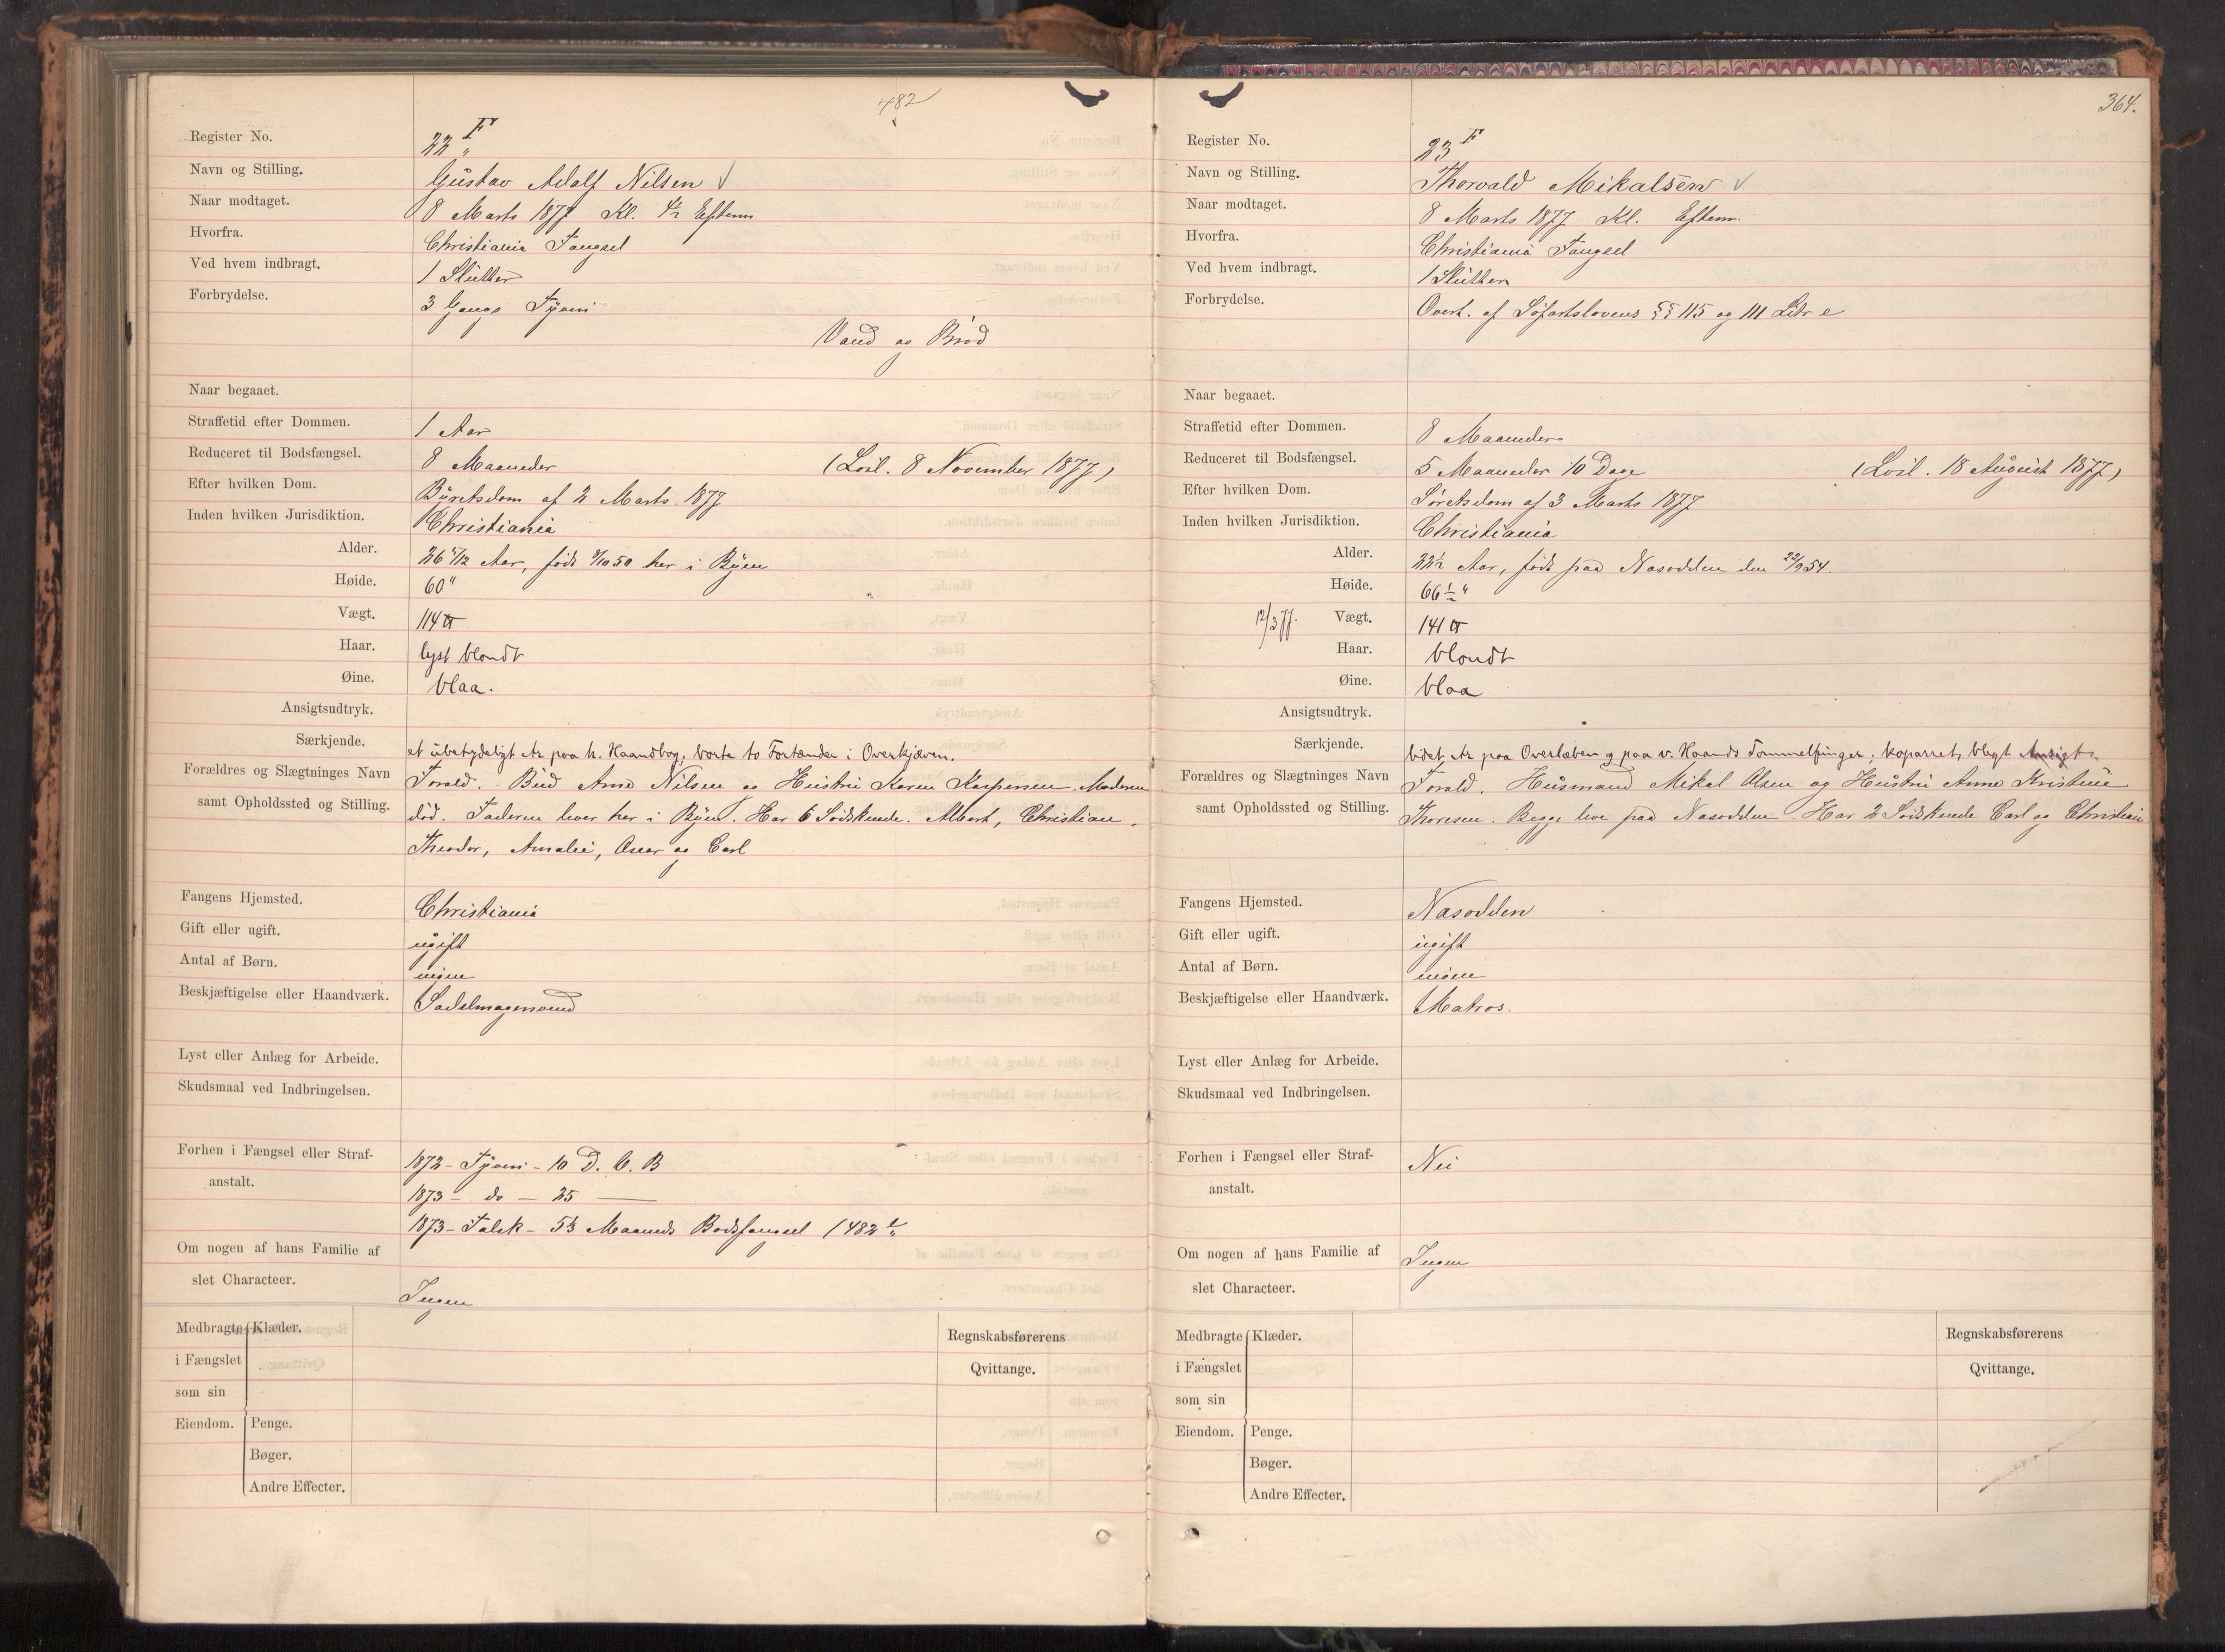 482
Register No. 22 F "
Navn og Stilling. Gustav Adolf Nilsen √
Naar modtaget. 8 Marts 1877 Kl. 4½ Efterm
Hvorfra. Christiania Fængsel
Ved hvem indbragt. 1 Slutter
Forbrydelse. 3 Gangs Tyveri
Vand og Brød
Naar begaaet.
Straffetid efter Dommen. 1 Aar
Reduceret til Bodsfængsel. 8 Maaneder (Løsl. 8 November 1877)
Efter hvilken Dom. Byretsdom af 2 Marts 1877
Inden hvilken Jurisdiktion. Christiania
Alder. 26 5/12 Aar, født 9/10 50 her i Byen
Høide. 60"
Vægt. 114 ℔
Haar. lyst blondt
Øine. blaa.
Ansigtsudtryk.
Særkjende. et ubetydeligt Ar paa h. Haandbag, borte to Fortænder i Overkjæven.
Forældres og Slægtninges Navn Foræld. Bud Arne Nilsen og Hustru Karen Kaspersen. Moderen
samt Opholdssted og Stilling. død. Faderen lever her i Byen. Har 6 Sødskende. Albert, Christian,
Theodor, Amalie, Oscar og Carl
Fangens Hjemsted. Christiania
Gift eller ugift. ugift
Antal af Børn. ingen
Beskjæftigelse eller Haandværk. Sadelmagersvend
Lyst eller Anlæg for Arbeide.
Skudsmaal ved Indbringelsen.
Forhen i Fængsel eller Straf- 1872 - Tyveri - 10 D. V. B
anstalt. 1873 - do - 25 —
1873 - Falsk - 5⅓ Maaneds Bodsfængsel (482
Om nogen af hans Familie af
slet Characteer. Ingen
Medbragte Klæder. Regnskabsførerens
i Fængslet Qvittange.
som sin
Eiendom. Penge.
Bøger.
Andre Effecter.
364.
Register No. 23 F
Navn og Stilling. Thorvald Mikalsen √
Naar modtaget. 8 Marts 1877 Kl. Efterm.
Hvorfra. Christiania Fængsel
Ved hvem indbragt. 1 Slutter
Forbrydelse. Overt. af Søfartslovens §§ 115 og 111 Litr e
Naar begaaet.
Straffetid efter Dommen. 8 Maaneder
Reduceret til Bodsfængsel. 5 Maaneder 10 Dage (Løsl. 18 August 1877)
Efter hvilken Dom. Søretsdom af 3 Marts 1877
Inden hvilken Jurisdiktion. Christiania
Alder. 22½ Aar, født paa Næsodden den 22/9 54.
Høide. 66½"
12/3 77. Vægt. 141 ℔
Haar. blondt
Øine. blaa
Ansigtsudtryk.
Særkjende. lidet Ar paa Overlæben og paa v. Haands Tommelfinger; koparret, blegt Ansigt.
Forældres og Slægtninges Navn Foræld. Husmand Mikal Olsen og Hustru Anne Kristine
samt Opholdssted og Stilling. Thoresen. Begge leve paa Næsodden. Har 2 Sødskende Carl og Christian
Fangens Hjemsted. Næsodden
Gift eller ugift. ugift
Antal af Børn. ingen
Beskjæftigelse eller Haandværk. Matros.
Lyst eller Anlæg for Arbeide.
Skudsmaal ved Indbringelsen.
Forhen i Fængsel eller Straf- Nei
anstalt.
Om nogen af hans Familie af Ingen
slet Characteer.
Medbragte Klæder. Regnskabsførerens
i Fængslet Qvittange.
som sin
Eiendom. Penge.
Bøger.
Andre Effecter.